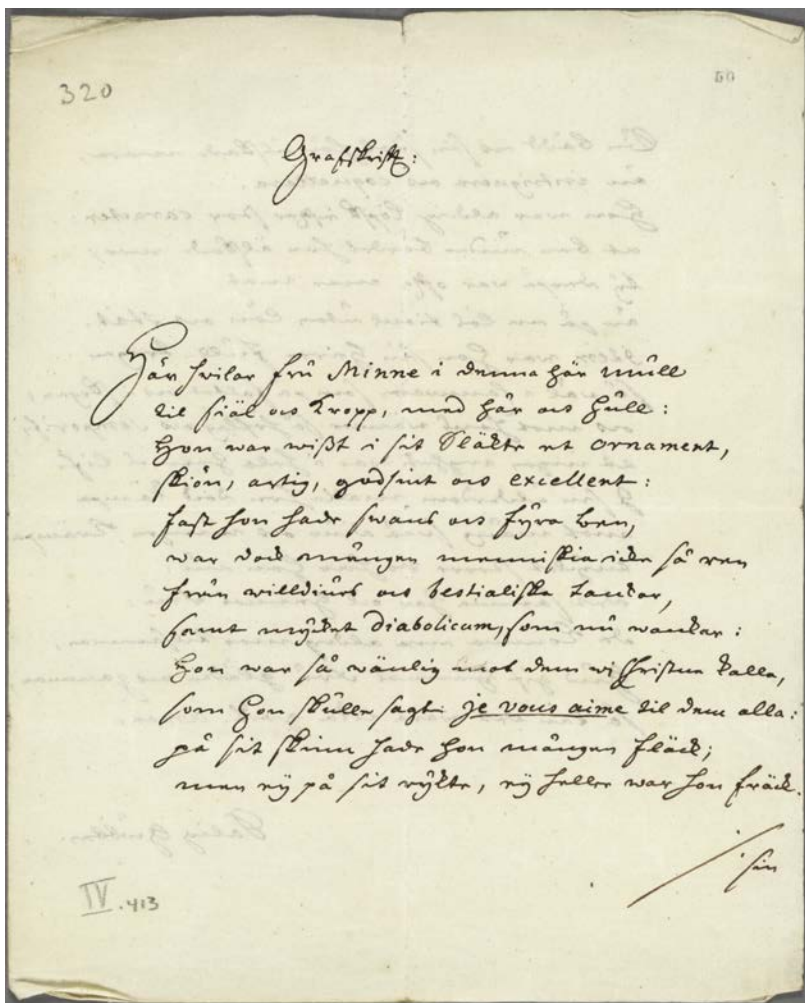 320
50
Grafskrift:
Här hwilar fru Minne i denna här mull
til siäl och kropp, med hår och hull:
Hon war wißt i sit Släkte et ornament,
skiön, artig, godsint och excellent:
fast hon hade swans och fyra ben,
war dock mången menniskia icke så ren
från willdiurs och bestialiska tankar,
samt mycket diabolicum, som nu wankar:
Hon war så wänlig mot dem wi Christne kalla,
som hon skulle sagt: je vous aime til dem alla:
på sit skinn hade hon mången fläck;
men ey på sit rykte, ey heller war hon fräck.
sin
IV.413